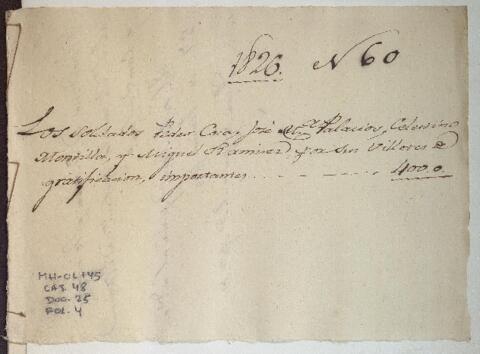 1826. N 60
Los soldados Pedro Caro, José Ml. Palacios, Celestino
Montilla, y Miguel Ramirez por sus Villetes de
gratificacion, importantes . . . . 400,,0.
MH-OL145
CAJ. 48
DOC. 25
FOL. 4